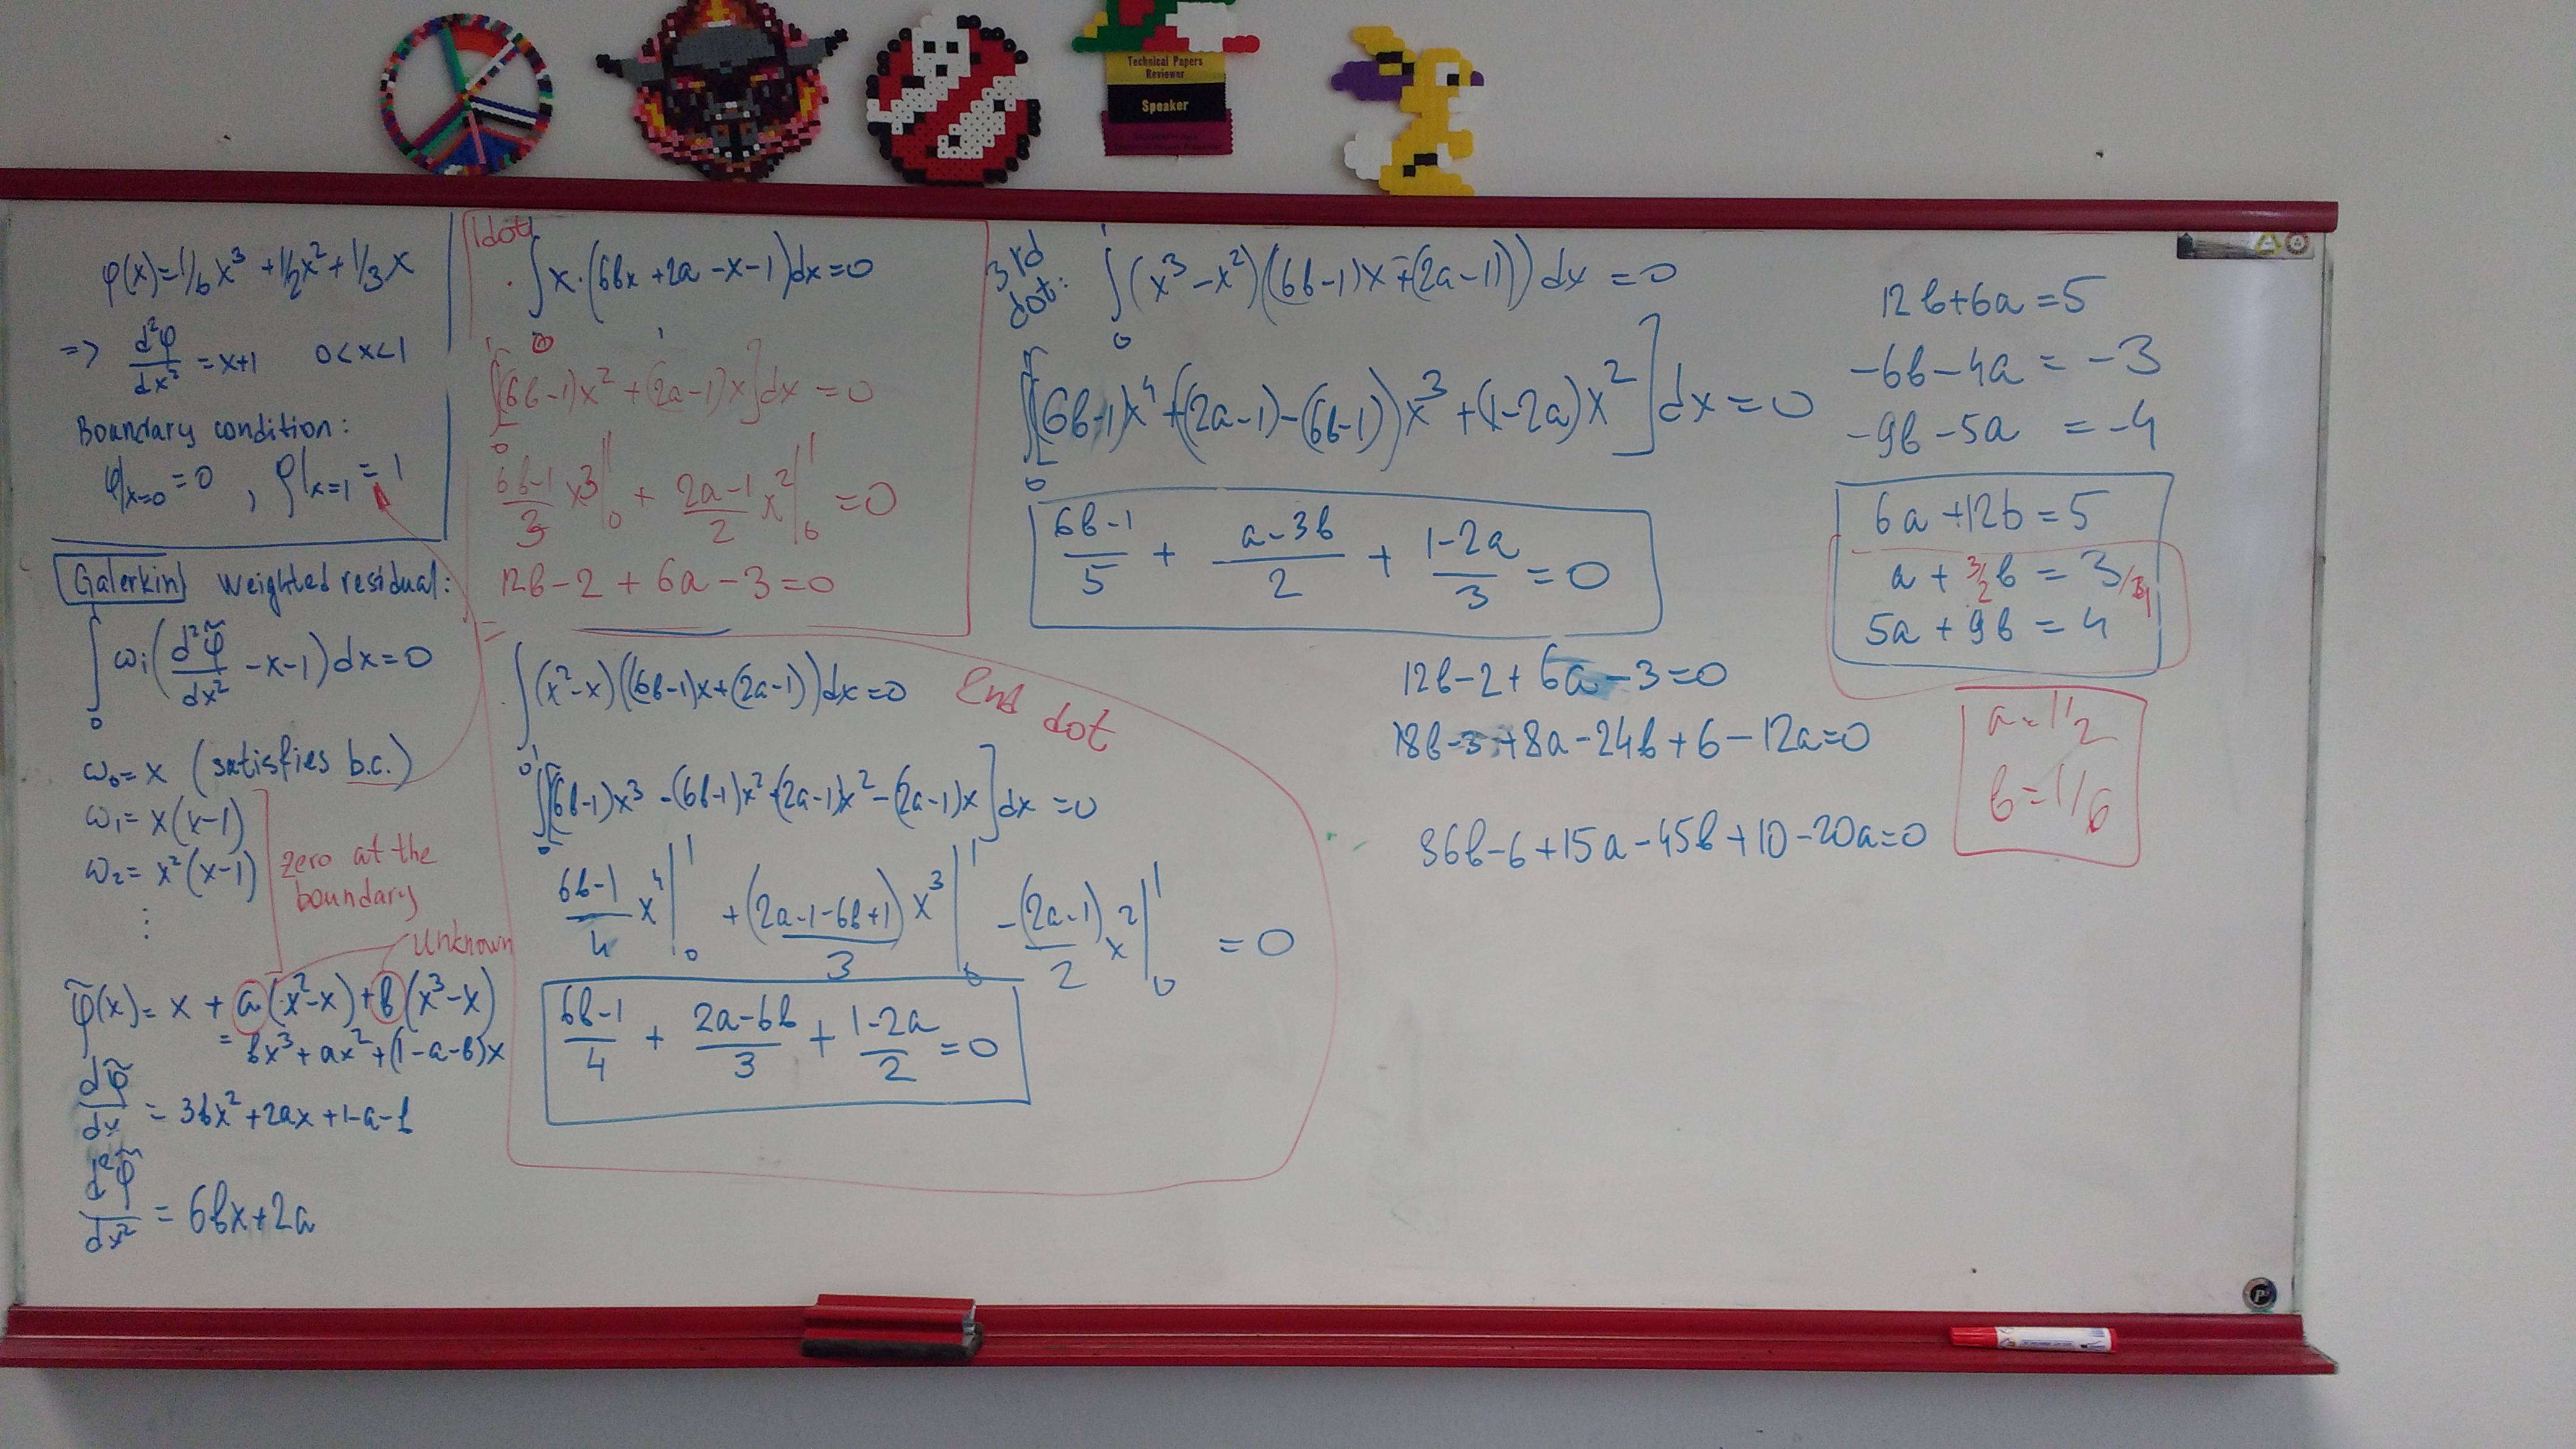 Technical Papers
Reviewer
Speaker
φ(x)=1/6 x³ + 1/2 x² + 1/3 x
=> d²φ/dx² = x+1 0<x<1
Boundary condition:
φ|x=0 = 0 , φ|x=1 = 1
Galerkin weighted residual:
∫₀ ωi (d²φ̃/dx² - x - 1) dx = 0
ω₀ = x (satisfies b.c.)
ω₁ = x(x-1)
ω₂ = x²(x-1)
⋮
zero at the
boundary
unknown
φ̃(x) = x + a(x²-x) + b(x³-x)
= bx³ + ax² + (1-a-b)x
dφ̃/dx = 3bx² + 2ax + 1-a-b
d²φ̃/dx² = 6bx + 2a
1dot
∫₀ x·(6bx + 2a - x - 1) dx = 0
∫₀¹ [(6b-1)x² + (2a-1)x] dx = 0
6b-1/3 x³|₀¹ + 2a-1/2 x²|₀¹ = 0
12b - 2 + 6a - 3 = 0
2nd dot
∫₀¹ (x²-x)((6b-1)x + (2a-1)) dx = 0
∫₀¹ [(6b-1)x³ - (6b-1)x² + (2a-1)x² - (2a-1)x] dx = 0
6b-1/4 x⁴|₀¹ + (2a-1-6b+1)/3 x³|₀¹ - (2a-1)/2 x²|₀¹ = 0
6b-1/4 + 2a-6b/3 + 1-2a/2 = 0
3rd dot:
∫₀¹ (x³-x²)((6b-1)x + (2a-1)) dx = 0
∫₀¹ [(6b-1)x⁴ + ((2a-1)-(6b-1))x³ + (1-2a)x²] dx = 0
6b-1/5 + a-3b/2 + 1-2a/3 = 0
12b - 2 + 6a - 3 = 0
18b - 3 + 8a - 24b + 6 - 12a = 0
36b - 6 + 15a - 45b + 10 - 20a = 0
12b + 6a = 5
-6b - 4a = -3
-9b - 5a = -4
6a + 12b = 5
a + 3/2 b = 3/4
5a + 9b = 4
a = 1/2
b = 1/6